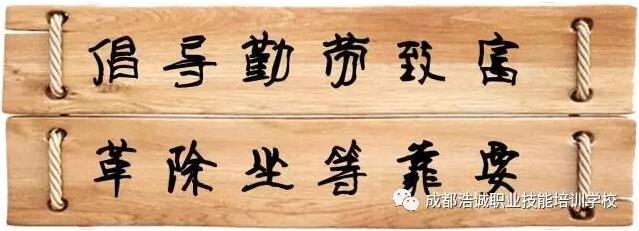 倡导勤劳致富
革除坐等靠要
成都浩诚职业技能培训学校